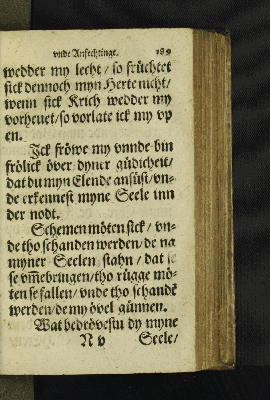 vnde Anfechtinge. 189
wedder my lecht / so früchtet
sick dennoch myn Herte nicht /
wenn sick Krich wedder my
vorheuet / so vorlate ick my vp
en.
Ick fröwe my vnnde bin
frölick över dyner güdicheit /
dat du myn Elende ansüst / vn-
de erkennest myne Seele inn
der nodt.
Schemen möten sick / vn-
de tho schanden werden / de na
myner Seelen stahn / dat se
se vm̃ebringen / tho rügge mö-
ten se fallen / vnde tho schandē
werden / de my övel günnen.
Wat bedrövestu dy myne
N v Seele /